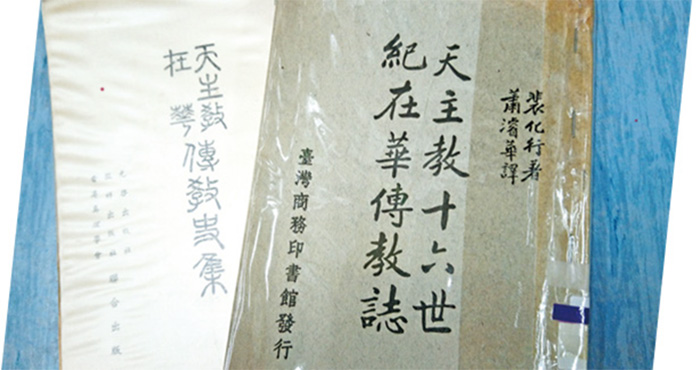 裴化行著
蕭濬華譯
天主教十六世
紀在華傳教誌
臺灣商務印書館發行
天主教
在華
傳教史集
聯合出版